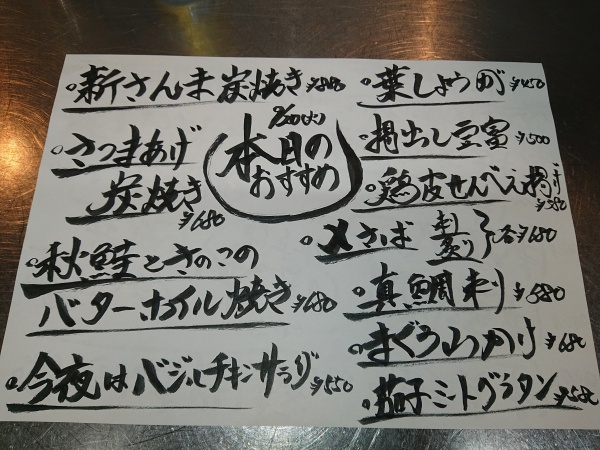 本日の
おすすめ
新さんま炭焼き
さつまあげ
炭焼き ¥680
秋鮭ときのこの
バターホイル焼き ¥680
今夜はバジルチキンサラダ ¥550
葉しょうが ¥450
揚出し豆富 ¥500
鶏皮せんべえ揚げ
〆さば 刺 炙り 各¥680
真鯛刺 ¥880
まぐろ山かけ ¥680
茄子ミートグラタン ¥580